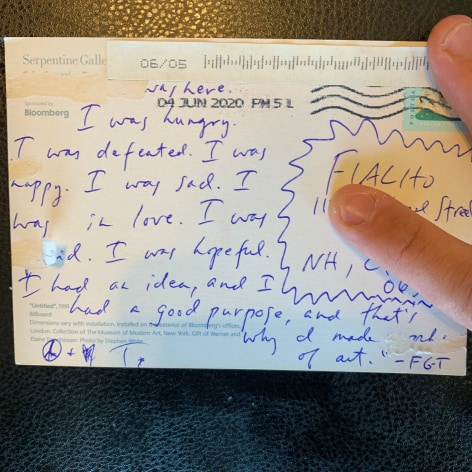 Serpentine Galle
06/05
was here.
04 JUN 2020 PM 5 L
Sponsored by
Bloomberg
I was hungry.
I was defeated. I was
happy. I was sad. I
was in love. I was
I was hopeful.
I had an idea, and I
had a good purpose, and that's
why I made
of art." -FGT
FIALHO
11
Stree
NH, C
06
"Untitled", 199
Billboard
Dimensions vary with installation. Installed on the exterior of Bloomberg's offices,
London. Collection of The Museum of Modern Art, New York. Gift of Werner and
Elaine Photo by Stephen White
+